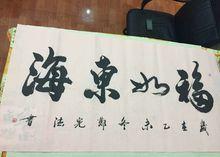 福如東海
歲在乙未冬鄭光法書